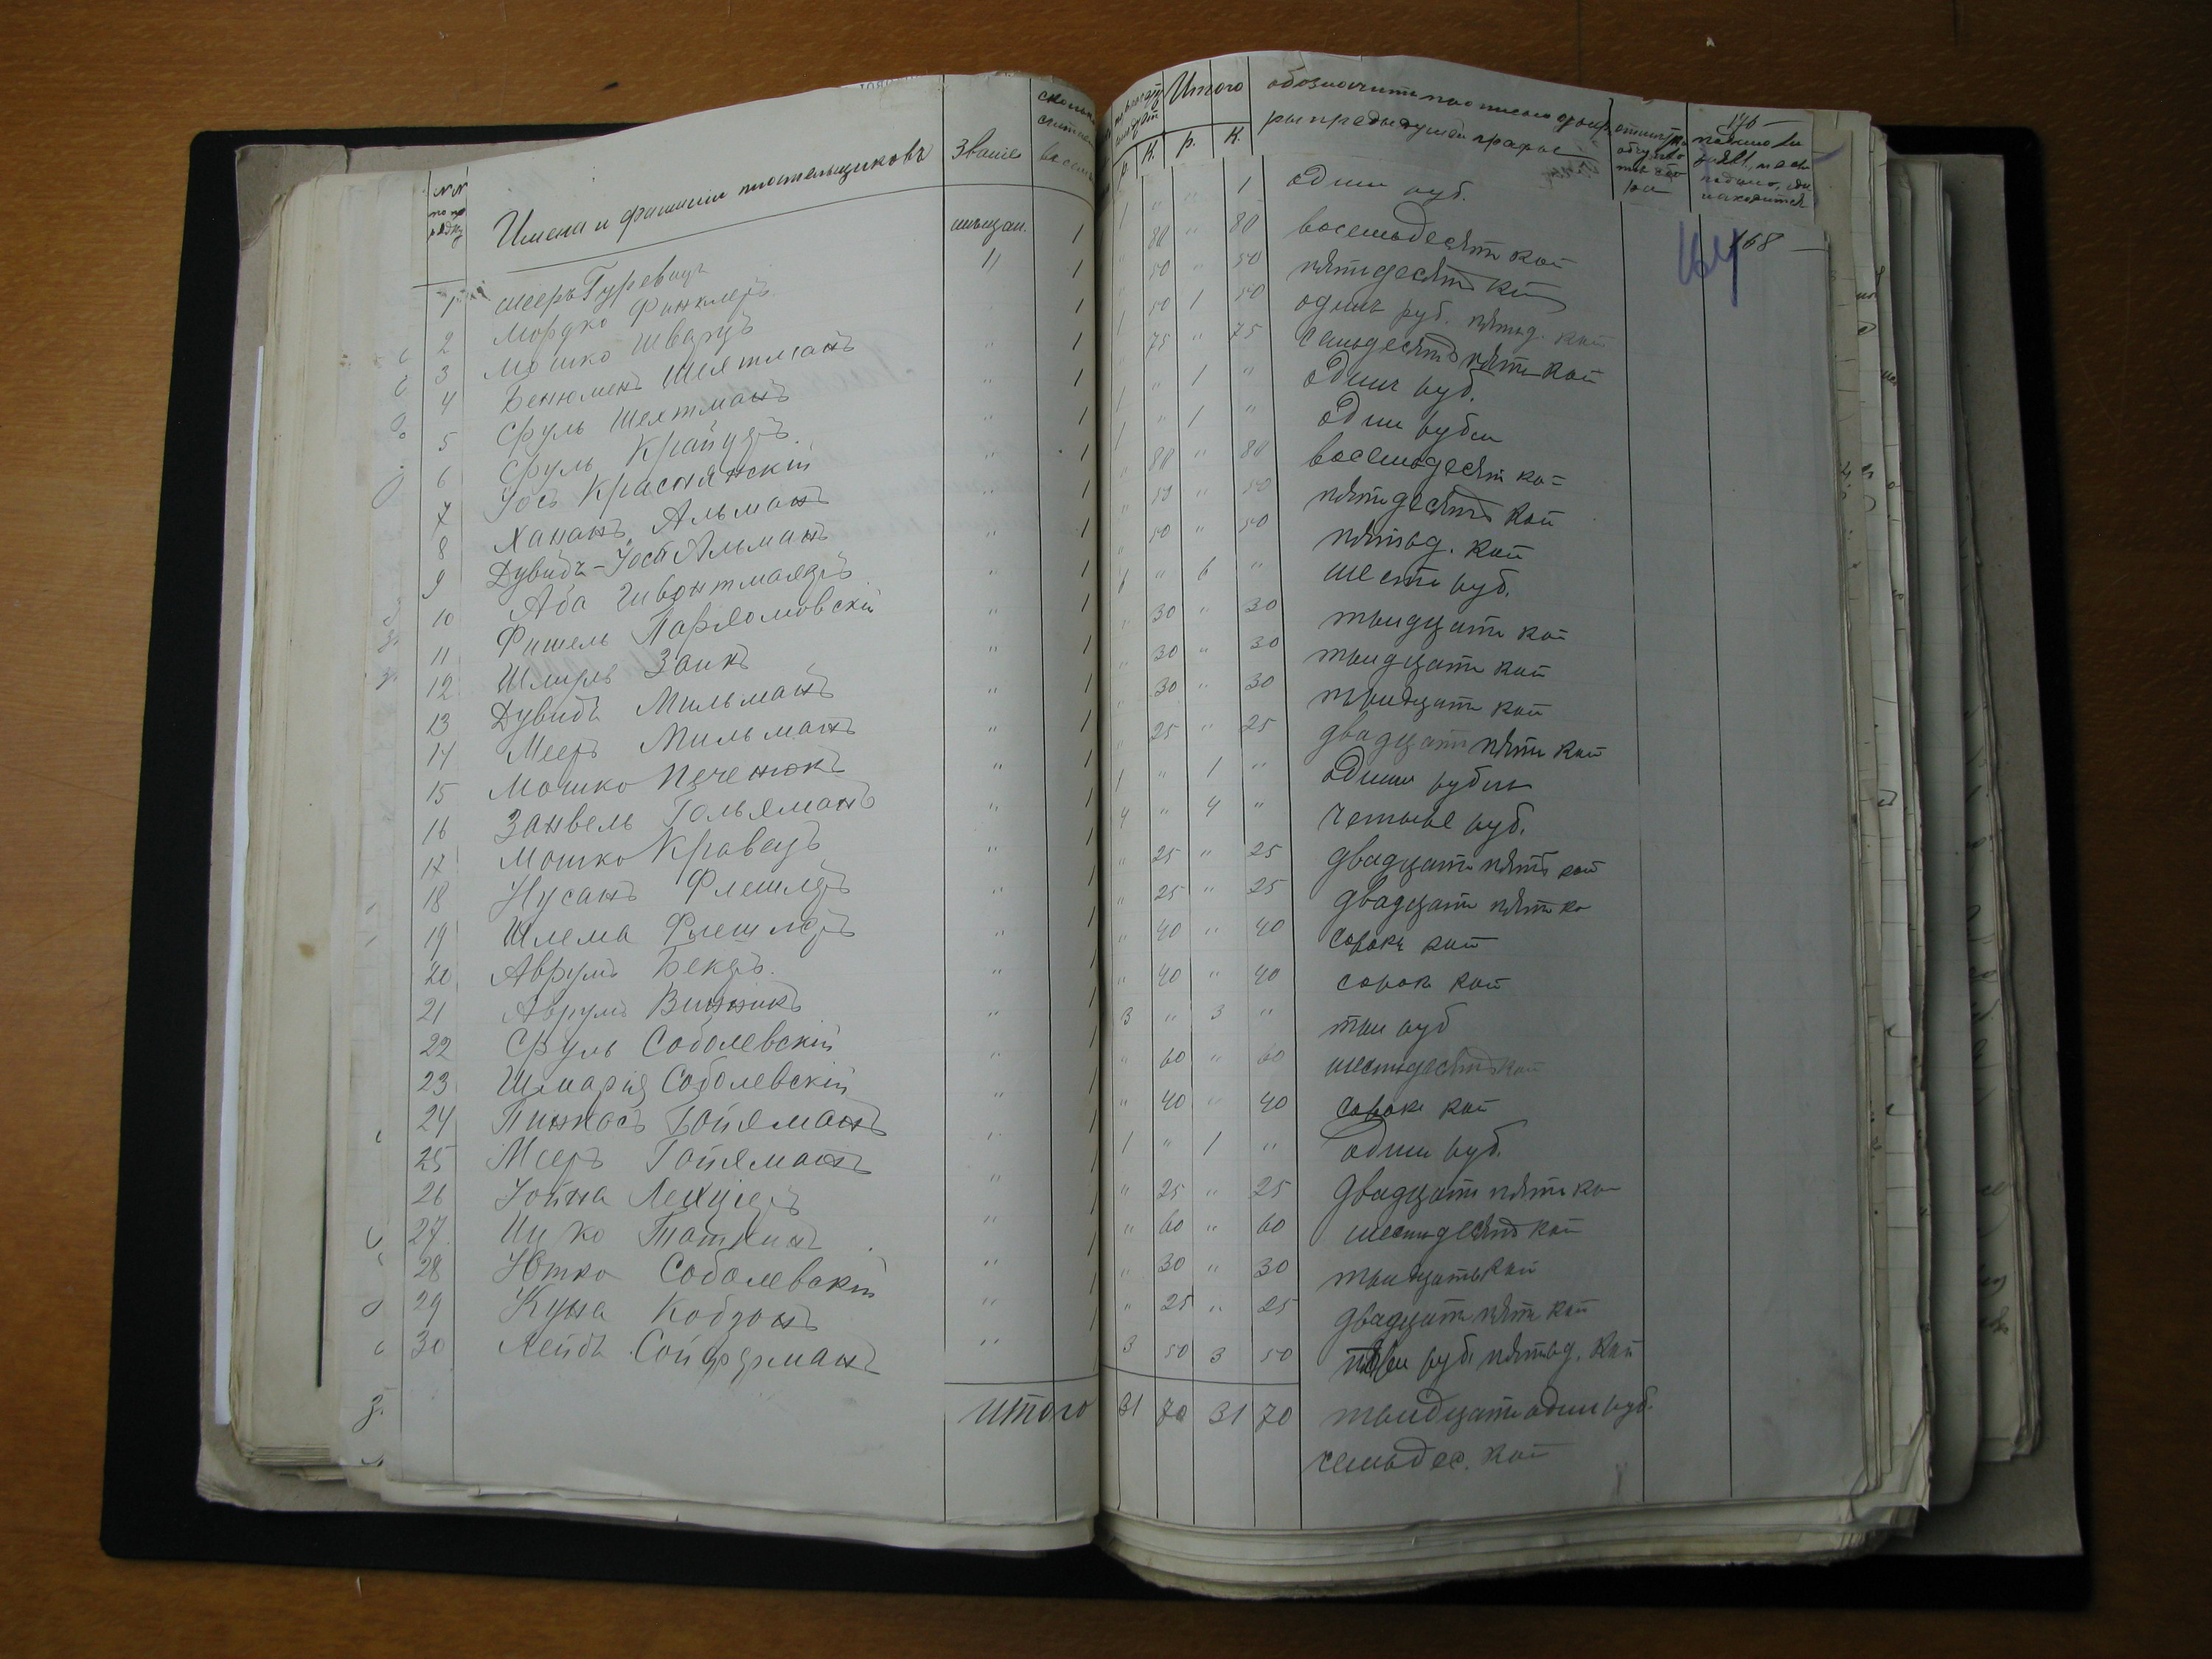 №№ по порядку Имена и фамиліи плательщиковъ Званіе
Итого обозначить прописью цифры предыдущей графы
Р. К. Р. К.
176
168
164
1 Мееръ Гуревичъ мещан. 1 1 " 1 один руб.
2 Мордко Финклеръ " 1 " 80 " 80 восемьдесят коп
3 Мошко Шварцъ 1 " 50 " 50 пятидесят коп
4 Бенюменъ Шехтманъ " 1 1 50 1 50 одинъ руб. пятьд. коп
5 Сруль Шехтманъ " 1 " 75 " 75 семьдесятъ пять коп
6 Сруль Крайцеръ " 1 1 " 1 " одинъ руб.
7 Іось Краснянскій " 1 1 " 1 " один рубль
8 Хананъ Альманъ " 1 " 80 " 80 восемьдесят коп
9 Дувидъ-Іосъ Альманъ " 1 " 50 " 50 пятидесятъ коп
10 Аба " 1 " 50 " 50 пятьд. коп
11 Фишель " 1 6 " 6 " шесть руб.
12 Шмиль Заикъ " 1 " 30 " 30 тридцать коп
13 Дувидъ Мильманъ " 1 " 30 " 30 тридцать коп
14 Мееръ Мильманъ " 1 " 30 " 30 тридцать коп
15 Мошко Печенюкъ " 1 " 25 " 25 двадцать пять коп
16 Занвель " 1 1 " 1 " один рубль
17 Мошко Кравецъ " 1 4 " 4 " четыре руб.
18 Нусанъ Флешлеръ " 1 " 25 " 25 двадцать пять коп
19 Шлема Флешлеръ " 1 " 25 " 25 двадцать пять ко
20 Аврумъ Бекеръ. " 1 " 40 " 40 сорокъ коп
21 Аврумъ Винникъ " 1 " 40 " 40 сорок коп
22 Сруль Соболевскій " 1 3 " 3 " три руб
23 Шмарія Соболевскій " 1 " 60 " 60 шестьдесятъ коп
24 Пинхосъ " 1 " 40 " 40 сорокъ коп
25 Мееръ " 1 1 " 1 " один руб.
26 Іойна " 1 " 25 " 25 двадцать пять коп
27 Ицко " 1 " 60 " 60 шестьдесятъ коп
28 Ютко Соболевскій " 1 " 30 " 30 тридцать коп
29 Куна Кобзонъ " 1 " 25 " 25 двадцать пять коп
30 Лейбъ Сойферманъ " 1 3 50 3 50 три руб. пятьд. коп
Итого 31 70 31 70 тридцать один руб.
семьдес. коп